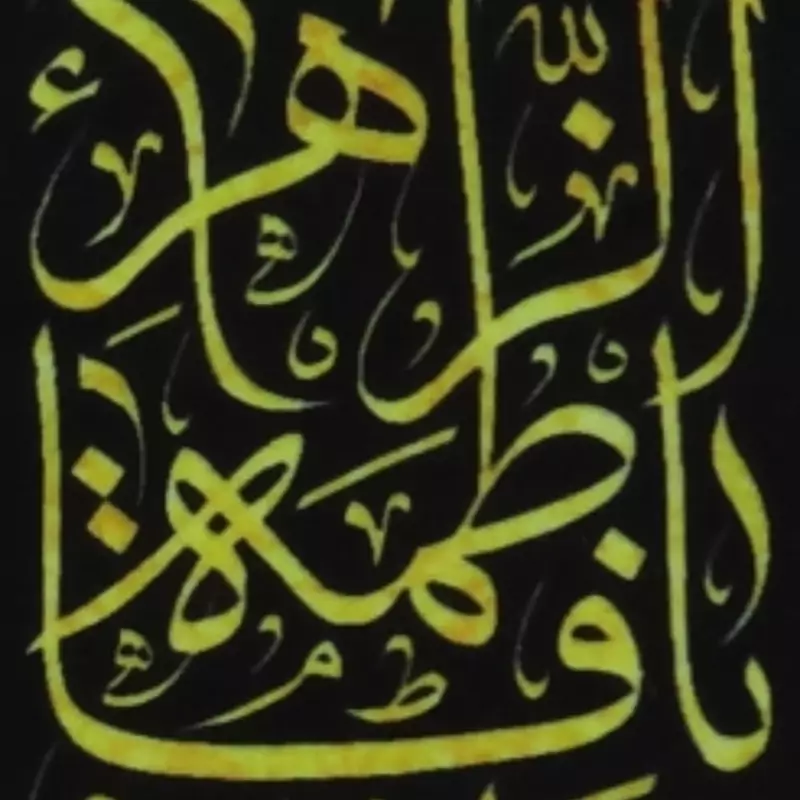 يا فاطمة
الزهراء